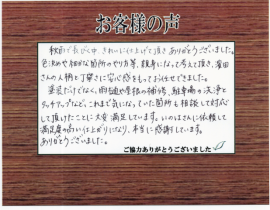 お客様の声
秋雨で長びく中、きれいに仕上げて頂きありがとうございました。
色決めや細かな箇所のやり方等、親身になって考えて頂き、濱田
さんの人柄と丁寧さに安心感をもってお任せできました。
塗装だけでなく、的確な塗装の補修、駐車場の洗浄と
タッチアップなど、これまで気になっていた箇所も相談して対応し
て頂けたことに大変満足しています。いのはさんに依頼して
満足度の高い仕上がりになり、本当に感謝しています。
ありがとうございました。
ご協力ありがとうございました